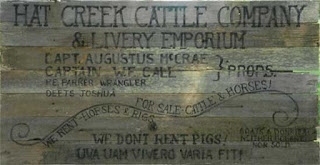 HAT CREEK CATTLE COMPANY
& LIVERY EMPORIUM
CAPT. AUGUSTUS McCRAE
CAPTAIN W.F. CALL
} PROPS.
P.E. PARKER WRANGLER
DEETS, JOSHUA
FOR SALE: CATTLE & HORSES!
WE RENT: HORSES & RIGS
WE DONT RENT PIGS!
GOATS & DONKEYS
NEW SOLD
UVA UAM VIVERO VARIA FIT!